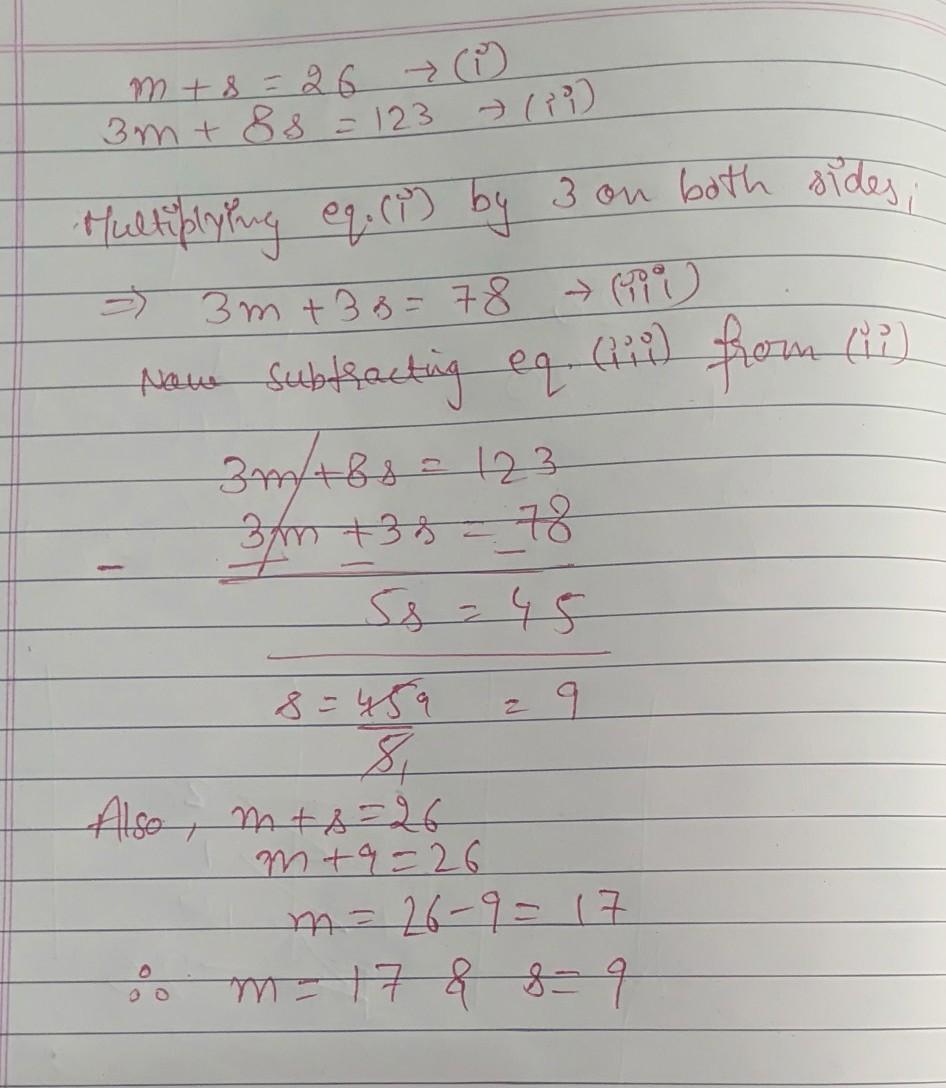 m + s = 26 → (i)
3m + 8s = 123 → (ii)
Multiplying eq.(i) by 3 on both sides,
⇒ 3m + 3s = 78 → (iii)
Now subtracting eq. (iii) from (ii)
3m + 8s = 123
3m + 3s = 78
- - - -
5s = 45
s = 45 9 = 9
5 1
Also, m + s = 26
m + 9 = 26
m = 26 - 9 = 17
∴ m = 17 & s = 9